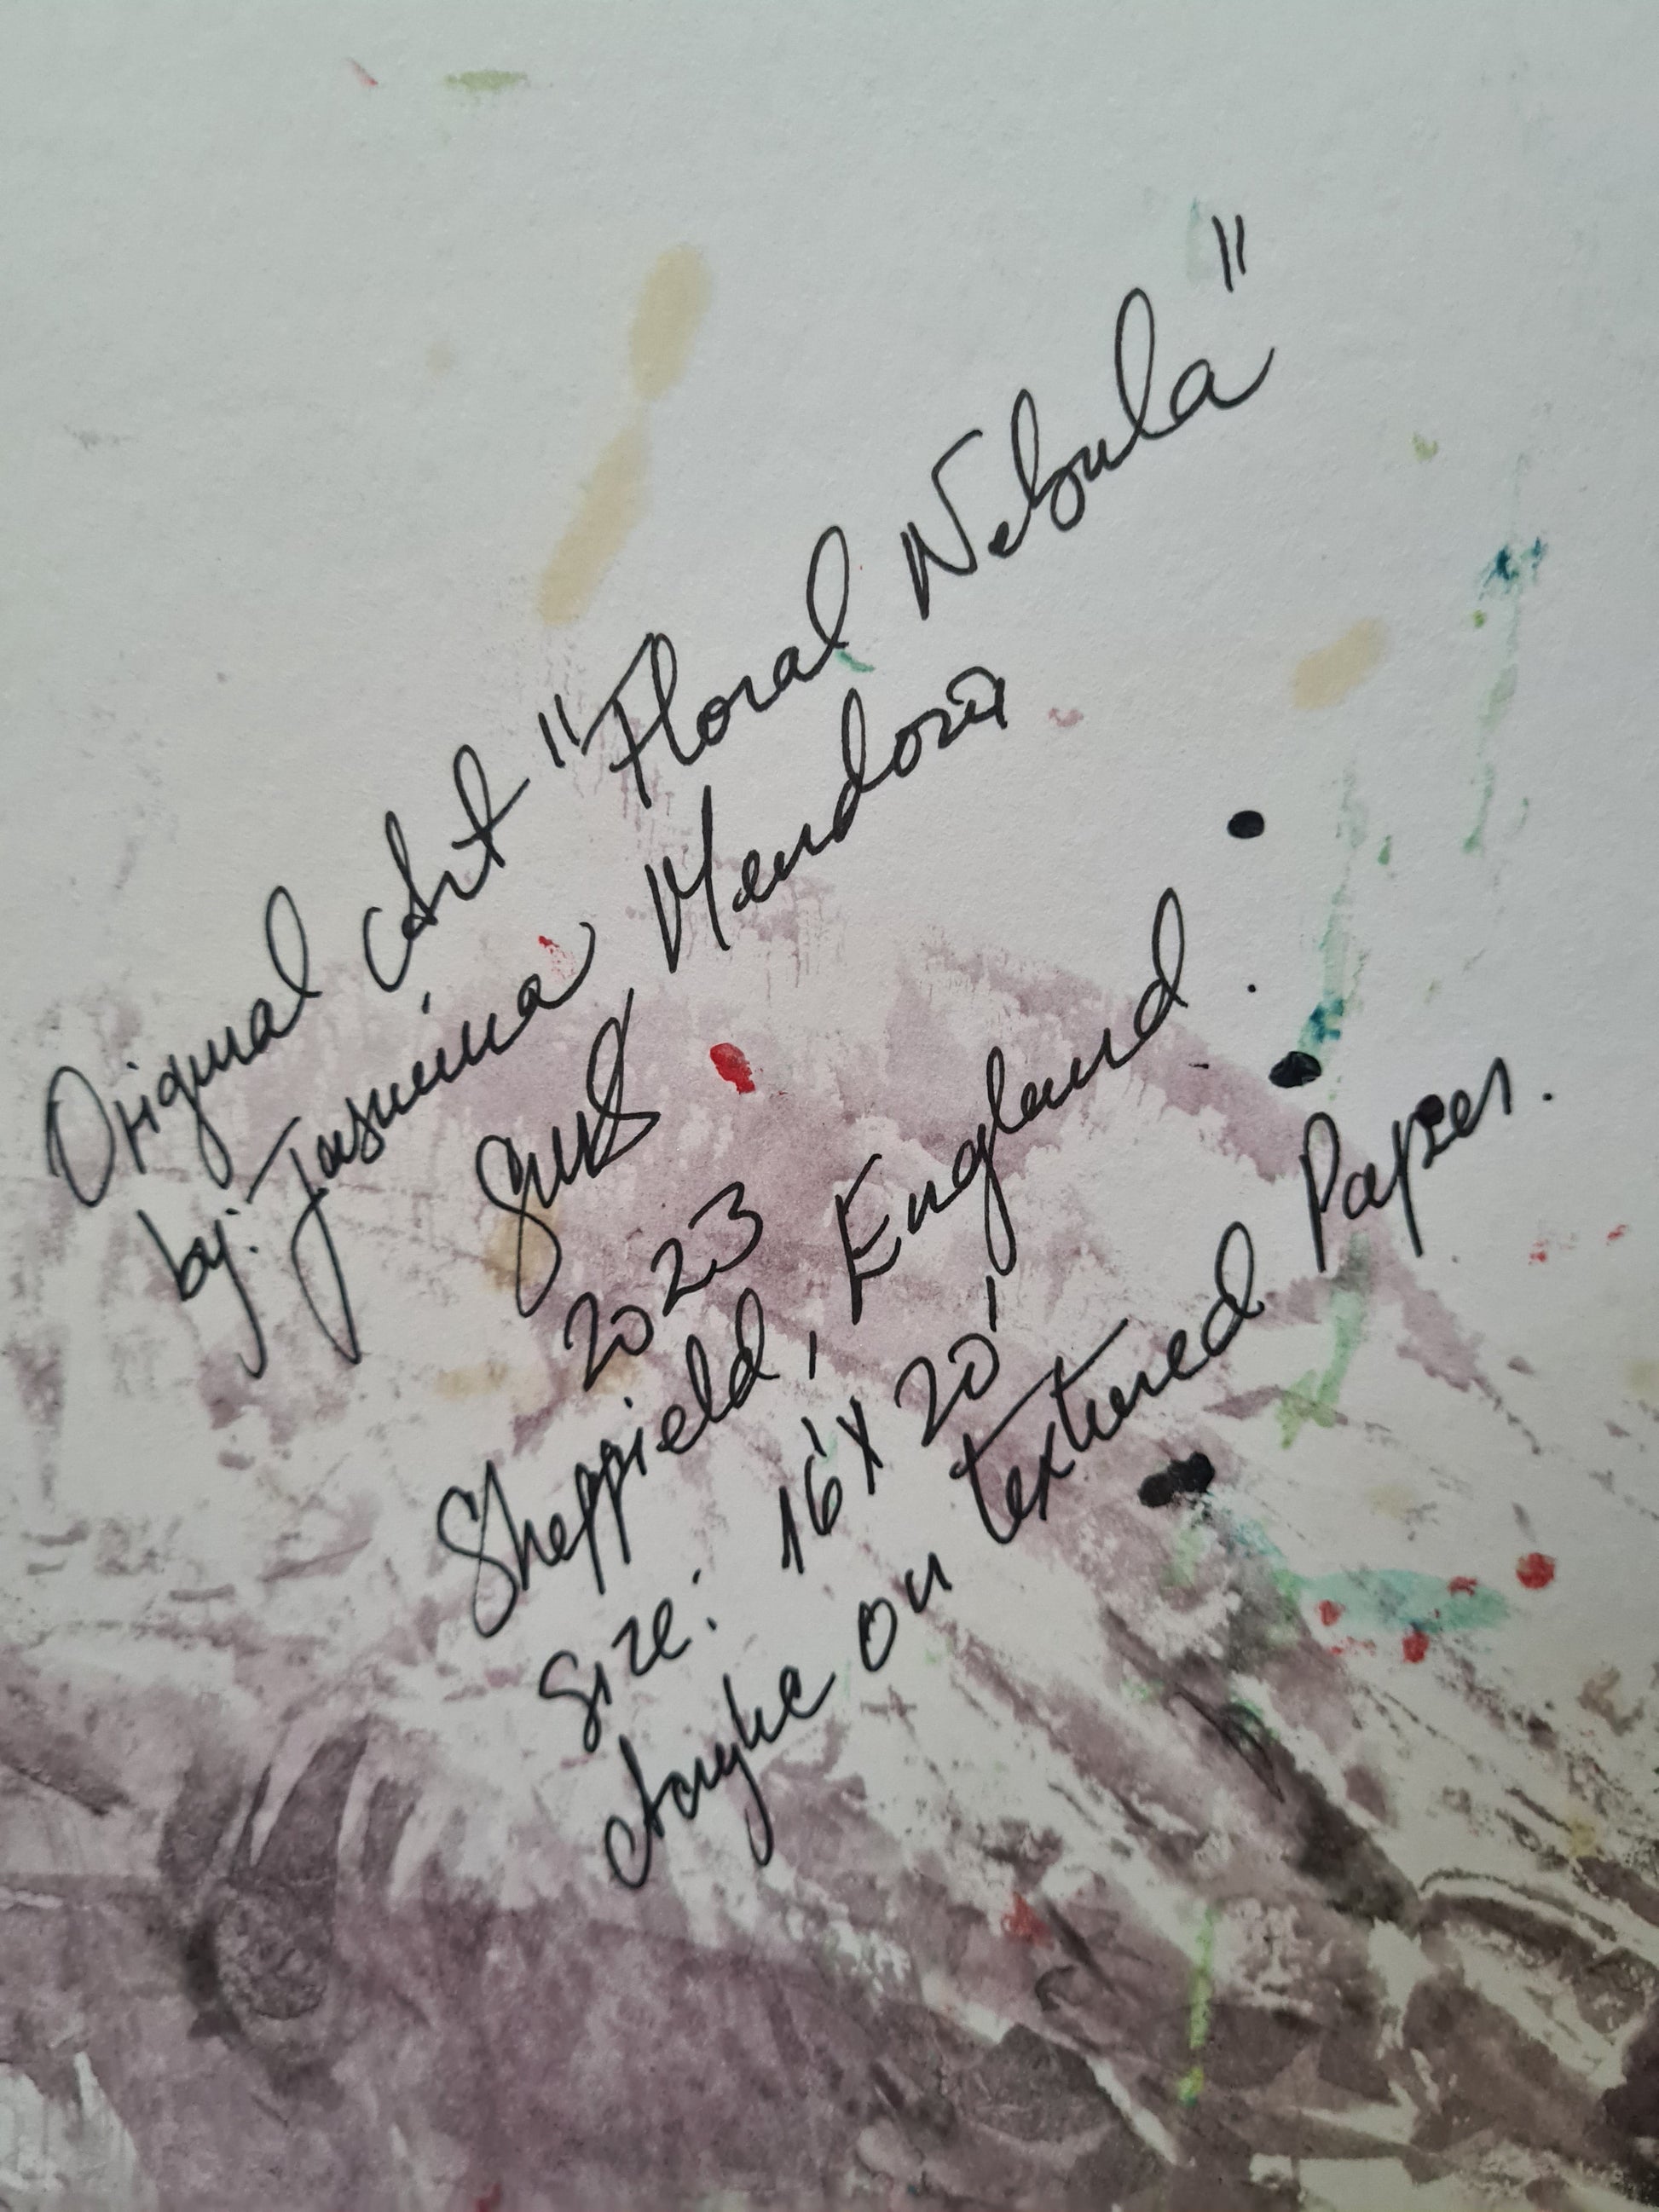 Original Art "Floral Nebula"
by: Jasmina Mendoza
2023
Sheffield, England.
Size: 16' x 20'
Acrylic on textured Paper.